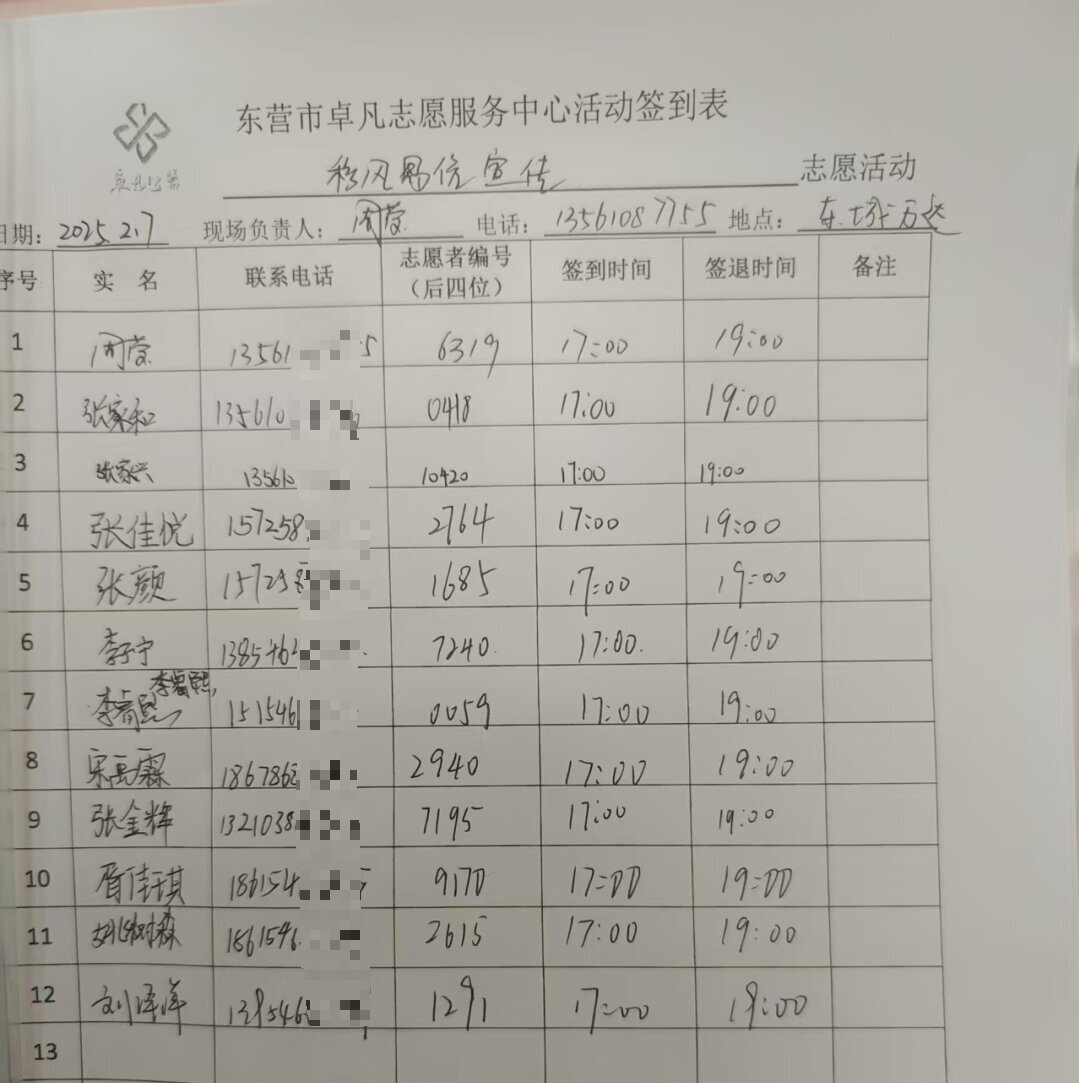 东营市卓凡志愿服务中心活动签到表
卓凡公益
移风易俗宣传 志愿活动
日期：2025.2.7 现场负责人：周蓉 电话：13561087755 地点：东城万达
序号 实 名 联系电话 志愿者编号（后四位） 签到时间 签退时间 备注
1 周蓉 13561 5 6319 17:00 19:00
2 张家和 135610 0418 17:00 19:00
3 张家兴 135610 10420 17:00 19:00
4 张佳悦 157258 2764 17:00 19:00
5 张颜 157258 1685 17:00 19:00
6 李子宁 1385462 7240 17:00 19:00
7 李睿熙 151546 0059 17:00 19:00
8 宋禹霖 186786 2940 17:00 19:00
9 张金辉 1321038 7195 17:00 19:00
10 胥佳琪 186154 9170 17:00 19:00
11 胡树森 1861546 2615 17:00 19:00
12 刘泽洋 139546 1291 17:00 19:00
13